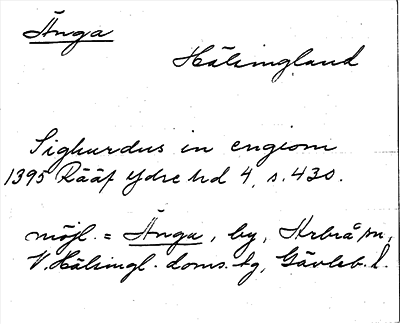 Änga
Hälsingland
Sighurdus in engiom
1395 Rääf Ydre hd 4, s. 430.
möjl. = Änga, by, Järbo sn,
V. Hälsingl. doms. tg, Gävleb. l.